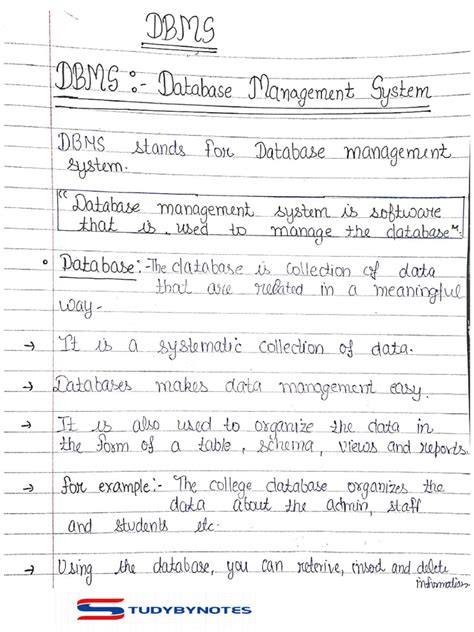 DBMS
DBMS :- Database Management System
DBMS stands for Database management
system.
"Database management system is software
that is used to manage the database".
Database:- The database is collection of data
that are related in a meaningful
way-
→ It is a systematic collection of data.
→ Databases makes data management easy.
→ It is also used to organize the data in
the form of a table, schema, views and reports.
→ for example:- The college database organizes the
data about the admin, staff
and students etc.
→ Using the database, you can reterive, insert and delete
information
STUDYBYNOTES